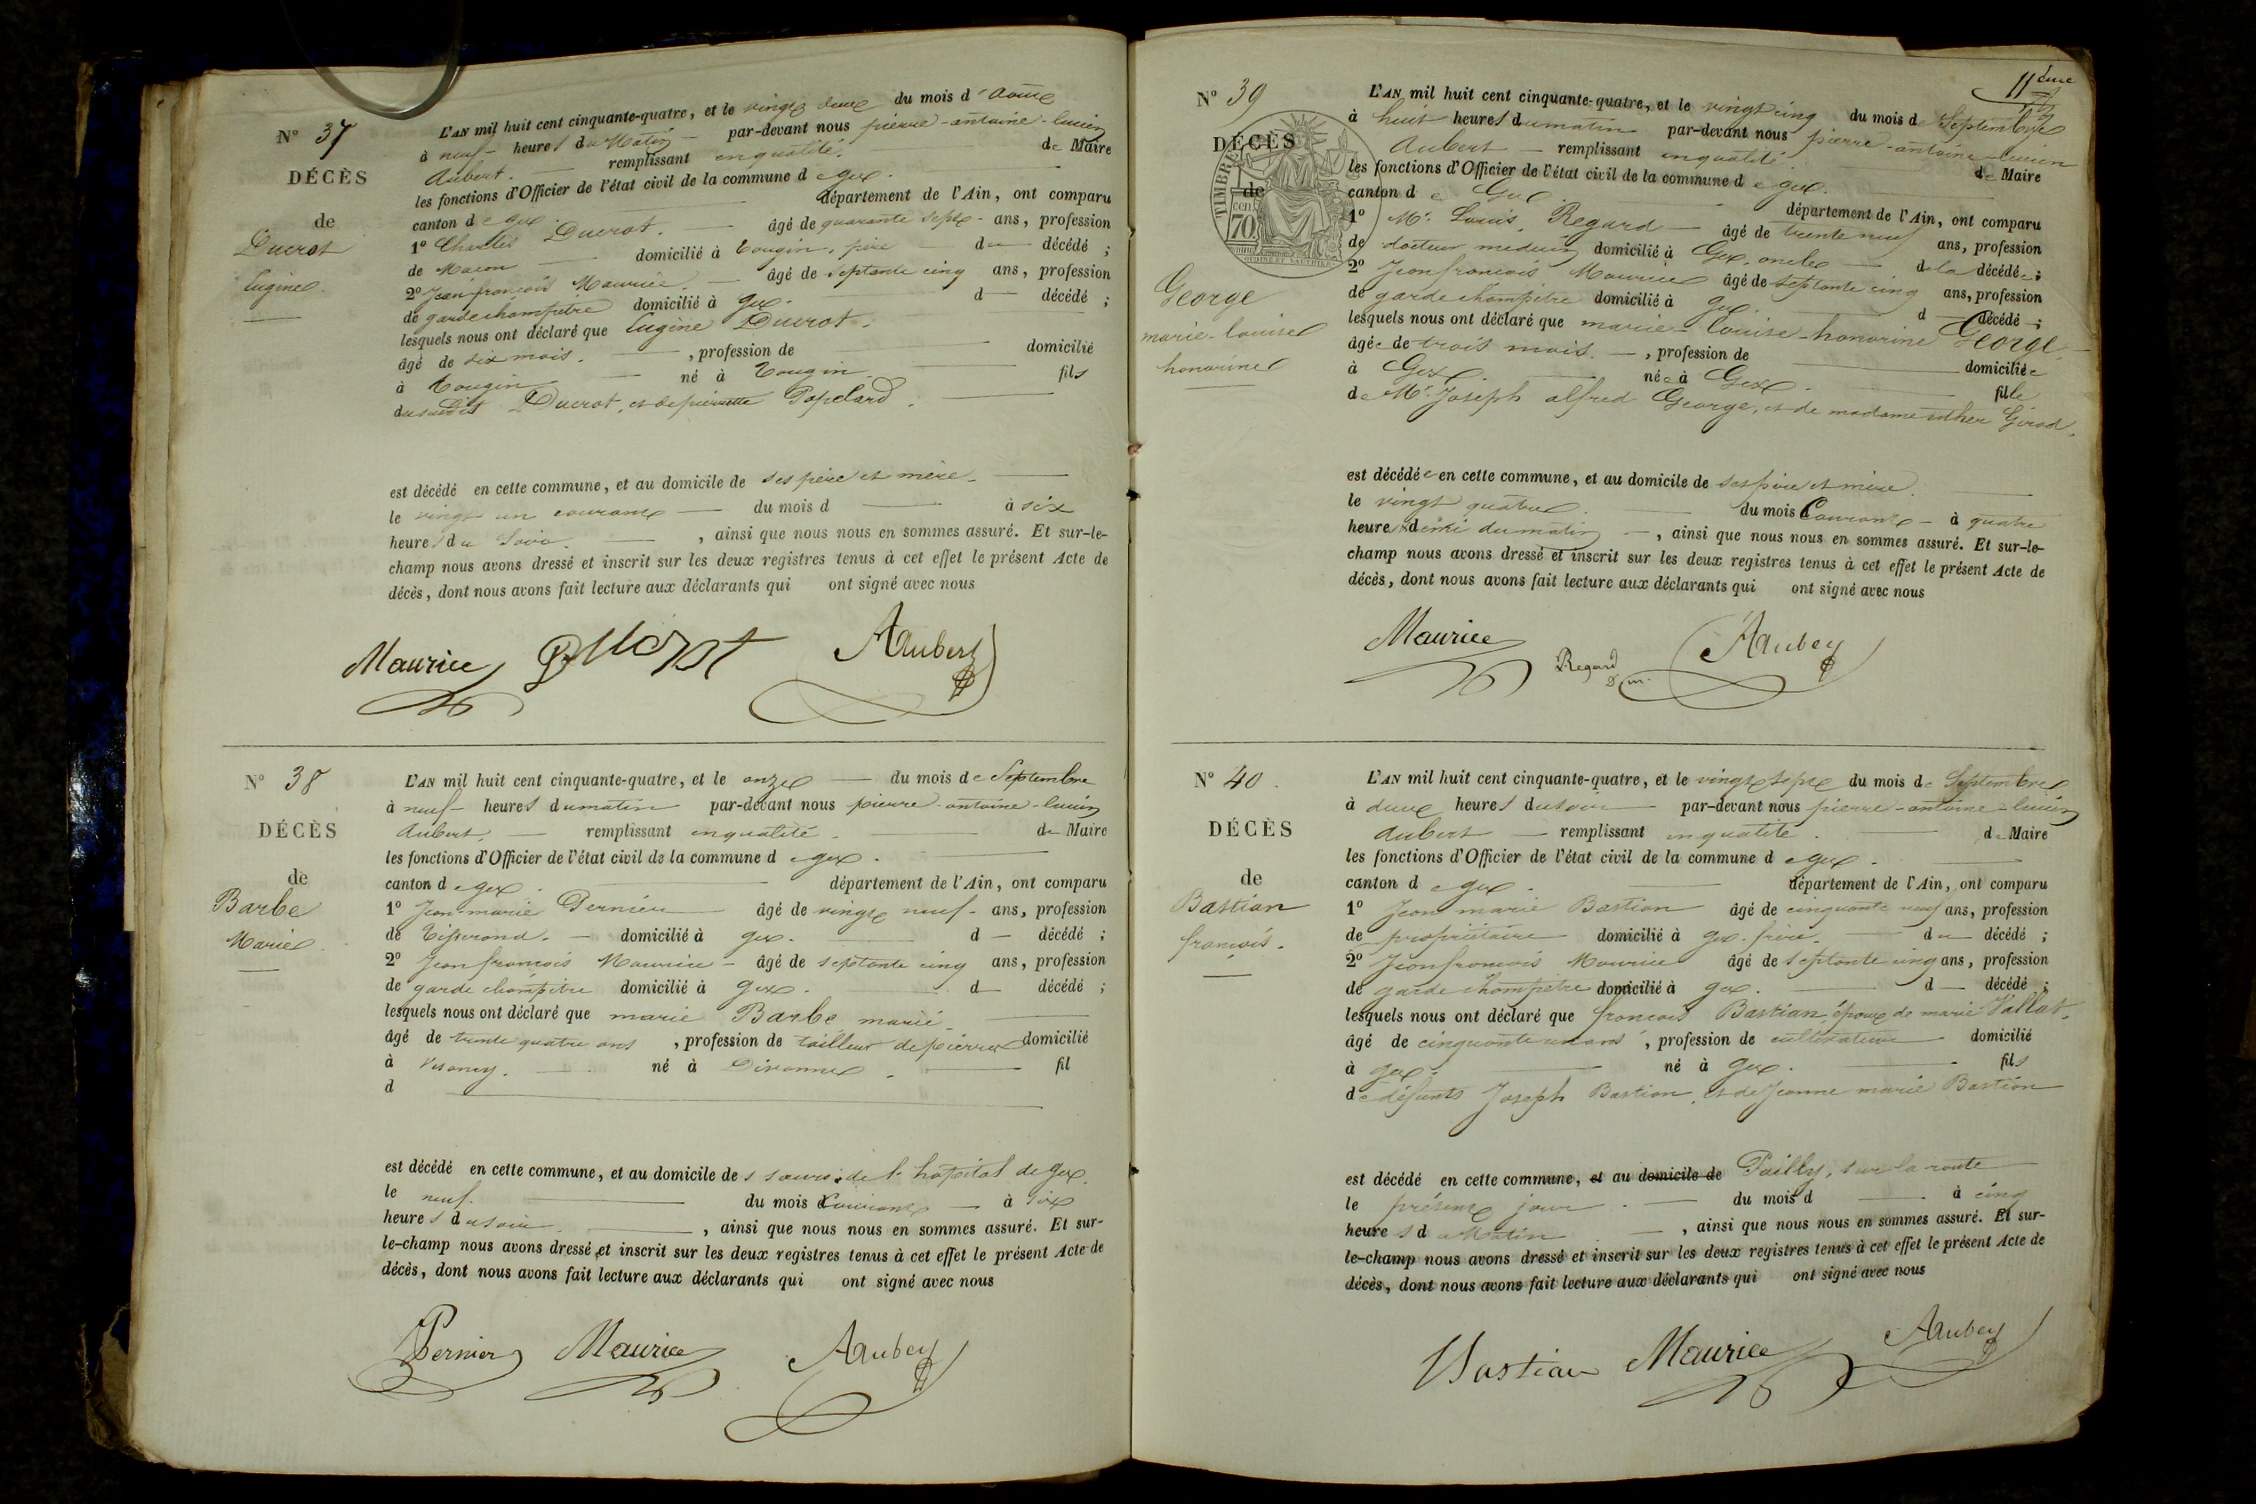 N° 37
DÉCÈS
de
Ducrot
Eugène
L'AN mil huit cent cinquante-quatre, et le vingt deux du mois d'Aout
à neuf heures du Matin par-devant nous pierre-antoine-lucien
Aubert. remplissant en qualité. de Maire
les fonctions d'Officier de l'état civil de la commune de gex.
canton de gex. département de l'Ain, ont comparu
1° Charles Ducrot. âgé de quarante sept ans, profession
de Macon domicilié à tougin, père du décédé ;
2° Jean françois Maurice. âgé de septante cinq ans, profession
de garde champêtre domicilié à gex. d décédé ;
lesquels nous ont déclaré que Eugène Ducrot.
âgé de dix mois. , profession de domicilié
à tougin né à tougin. fils
dususdit Ducrot, et de pierrette Papelard.
est décédé en cette commune, et au domicile de ses père et mère.
le vingt un courant du mois d à six
heures du Soir. , ainsi que nous nous en sommes assuré. Et sur-le-
champ nous avons dressé et inscrit sur les deux registres tenus à cet effet le présent Acte de
décès, dont nous avons fait lecture aux déclarants qui ont signé avec nous
Maurice Ducrot AAubert
N° 38
DÉCÈS
de
Barbe
Marie
L'AN mil huit cent cinquante-quatre, et le onze du mois de Septembre
à neuf heures du matin par-devant nous pierre-antoine-lucien
Aubert, remplissant en qualité. de Maire
les fonctions d'Officier de l'état civil de la commune de gex.
canton de gex. département de l'Ain, ont comparu
1° Jean-marie Pernier âgé de vingt neuf ans, profession
de Tisserand. domicilié à gex. d décédé ;
2° Jean françois Maurice âgé de septante cinq ans, profession
de garde champêtre domicilié à gex. d décédé ;
lesquels nous ont déclaré que marie Barbe marié
âgé de trente quatre ans , profession de tailleur de pierres domicilié
à Vesancy. né à Divonne. fil
d
est décédé en cette commune, et au domicile des sœurs de l'hopital de gex.
le neuf. du mois Courant à six
heures du soir. , ainsi que nous nous en sommes assuré. Et sur-
le-champ nous avons dressé et inscrit sur les deux registres tenus à cet effet le présent Acte de
décès, dont nous avons fait lecture aux déclarants qui ont signé avec nous
Pernier Maurice AAubert
11ème
N° 39
DÉCÈS
de
TIMBRE
70
George
marie-louise
honorine
L'AN mil huit cent cinquante-quatre, et le vingt cinq du mois de Septembre
à huit heures du matin par-devant nous pierre-antoine-lucien
Aubert remplissant en qualité de Maire
les fonctions d'Officier de l'état civil de la commune de gex.
canton de Gex département de l'Ain, ont comparu
1° Mr. Louis Regard âgé de trente neuf ans, profession
de docteur medecin domicilié à Gex, oncle de la décédée ;
2° Jean françois Maurice âgé de septante cinq ans, profession
de garde champêtre domicilié à gex. d décédé ;
lesquels nous ont déclaré que marie-louise-honorine George
âgée de trois mois. , profession de domiciliée
à Gex. née à Gex. fille
de Mr. Joseph alfred George, et de madame esther Girod.
est décédée en cette commune, et au domicile de ses père et mère.
le vingt quatre. du mois Courant à quatre
heures demi du matin , ainsi que nous nous en sommes assuré. Et sur-le-
champ nous avons dressé et inscrit sur les deux registres tenus à cet effet le présent Acte de
décès, dont nous avons fait lecture aux déclarants qui ont signé avec nous
Maurice Regard D.m. AAubert
N° 40.
DÉCÈS
de
Bastian
françois.
L'AN mil huit cent cinquante-quatre, et le vingt sept du mois de Septembre
à deux heures du soir par-devant nous pierre-antoine-lucien
Aubert remplissant en qualité. de Maire
les fonctions d'Officier de l'état civil de la commune de gex.
canton de gex. département de l'Ain, ont comparu
1° Jean marie Bastian âgé de cinquante neuf ans, profession
de propriétaire domicilié à gex. frère. du décédé ;
2° Jean françois Maurice âgé de septante cinq ans, profession
de garde champêtre domicilié à gex. d décédé ;
lesquels nous ont déclaré que francois Bastian, époux de marie Vallat.
âgé de cinquante un ans , profession de cultivateur domicilié
à gex. né à gex. fils
de défunts Joseph Bastian, et de Jeanne marie Bastian
est décédé en cette commune, et au domicile de Pailly, sur la route
le présent jour. du mois d à cinq
heures du Matin , ainsi que nous nous en sommes assuré. Et sur-
le-champ nous avons dressé et inscrit sur les deux registres tenus à cet effet le présent Acte de
décès, dont nous avons fait lecture aux déclarants qui ont signé avec nous
Bastian Maurice AAubert